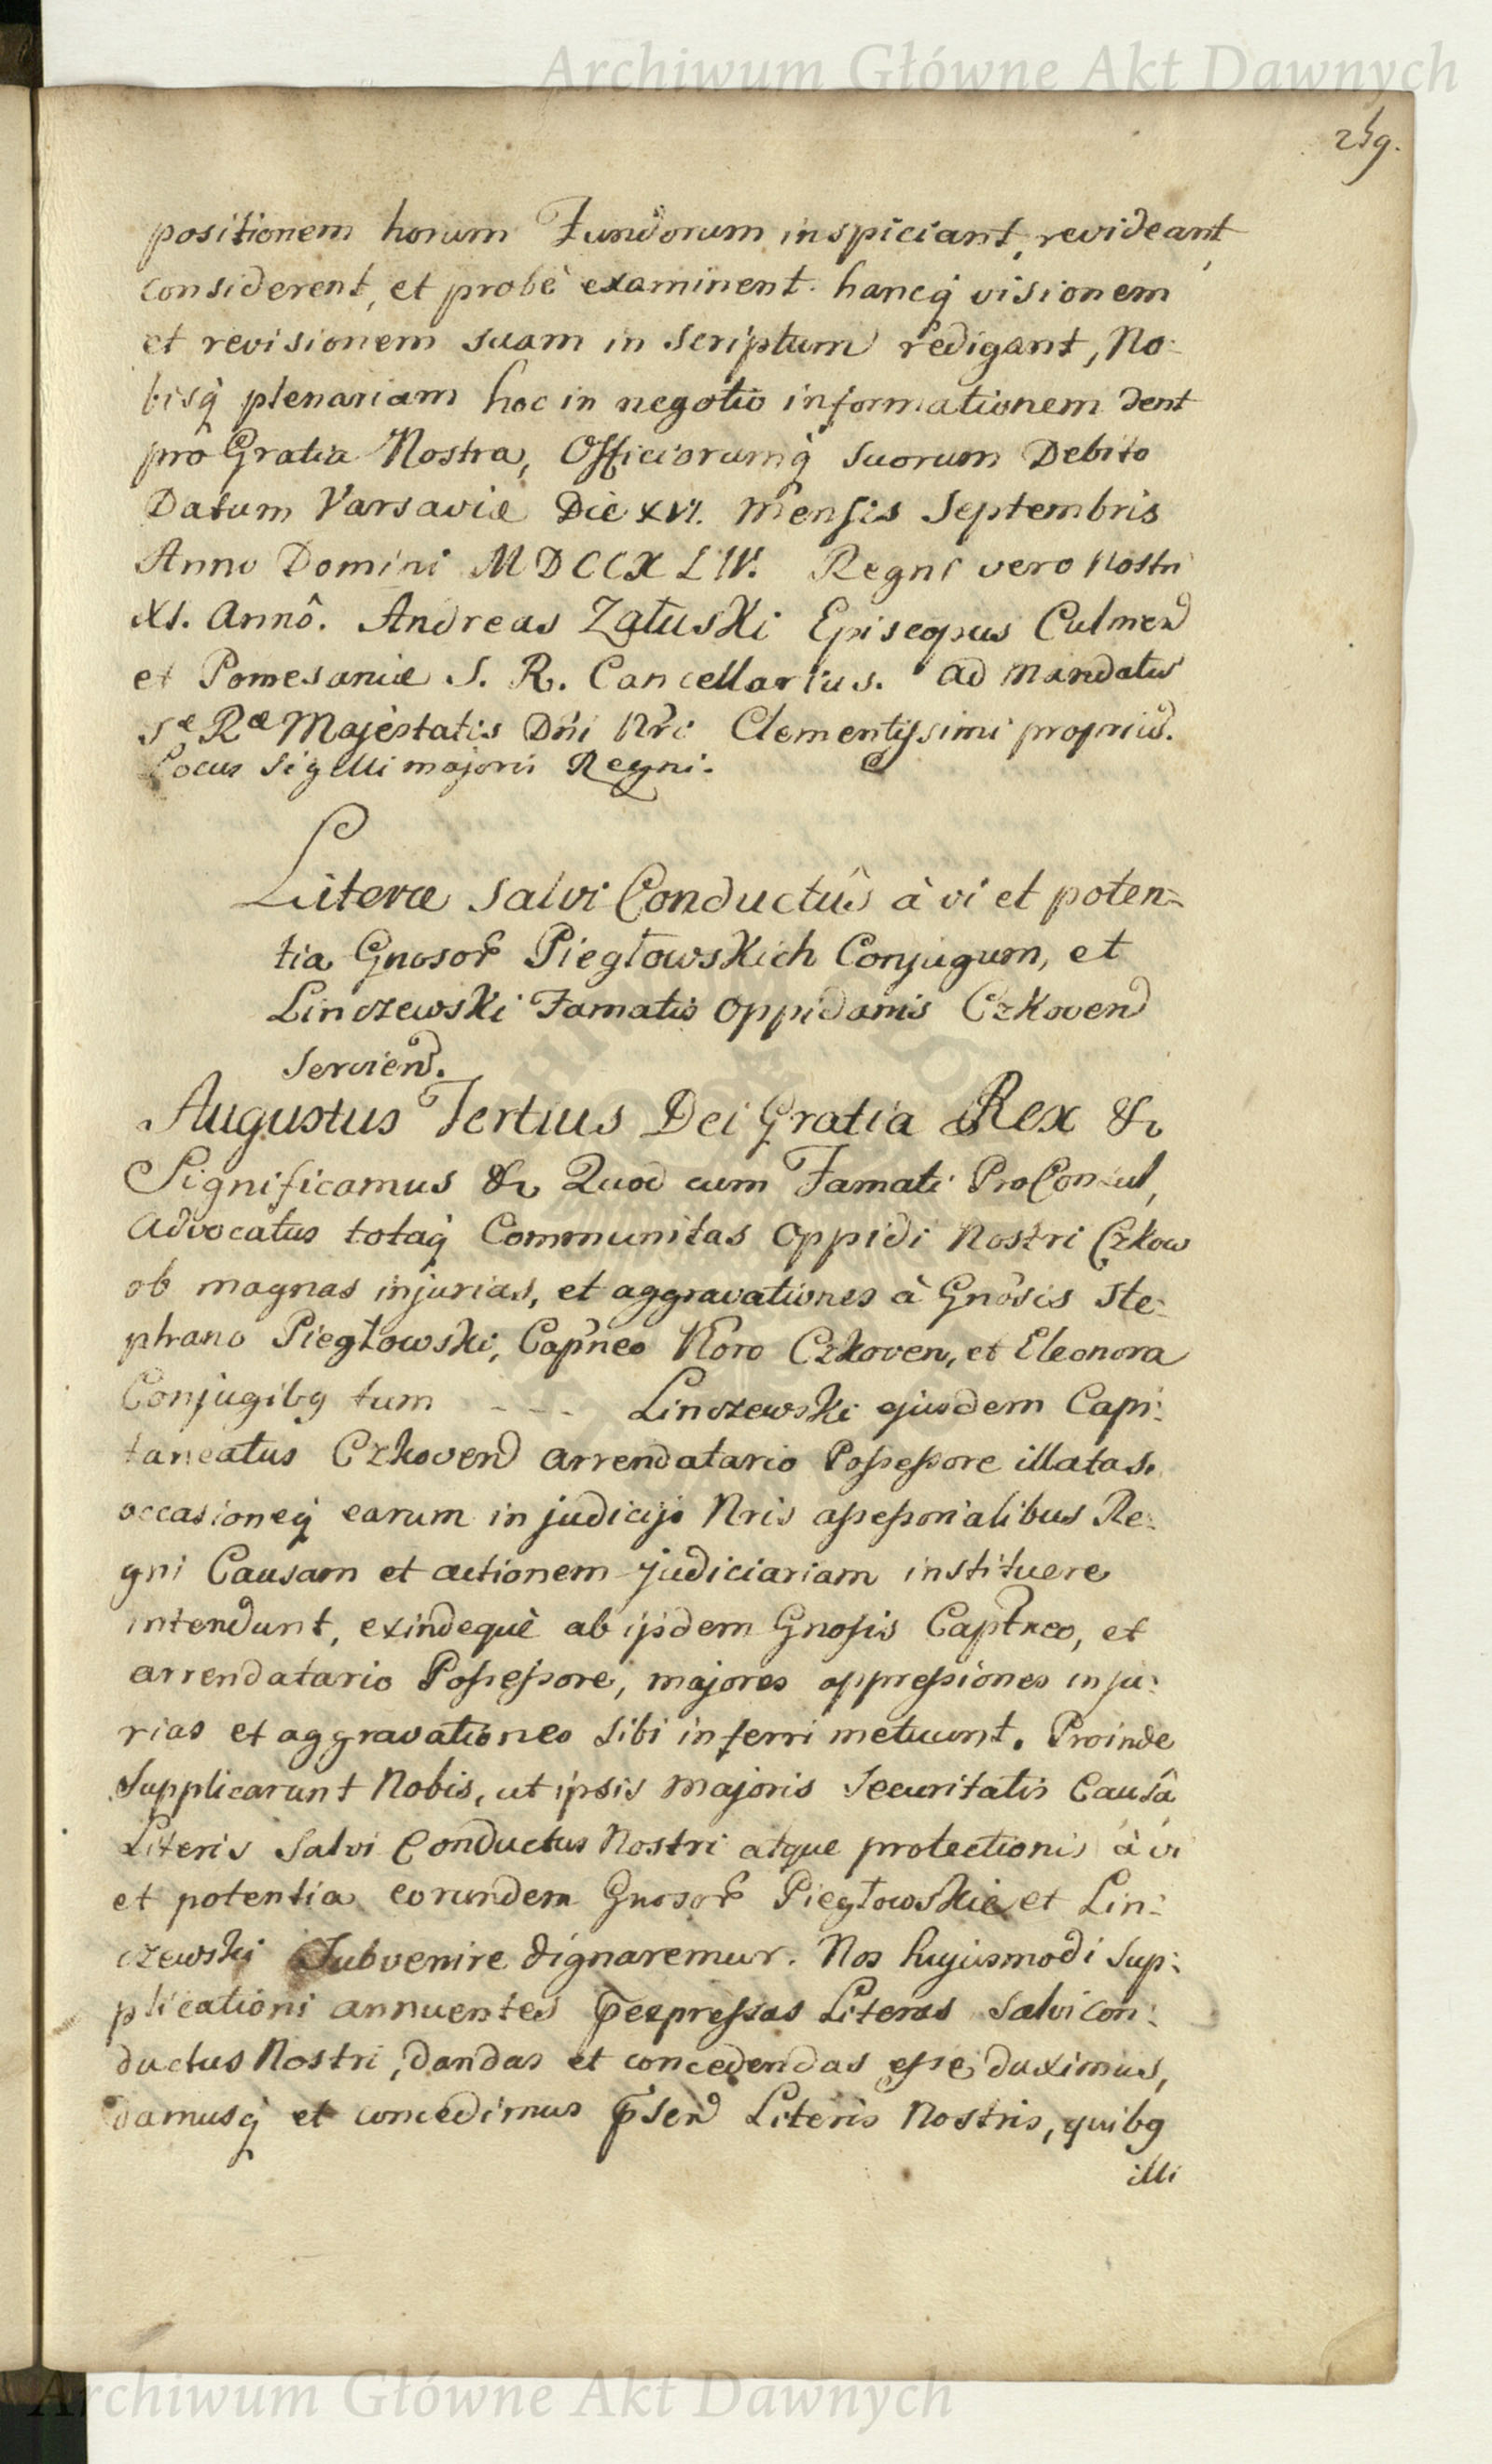 Archiwum Główne Akt Dawnych
259.
positionem horum Fundorum inspiciant, revideant,
considerent, et probè examinent. hancq́ visionem
et revisionem suam in Scriptum redigant, No-
bisq́ plenariam hoc in negotio informationem dent
prô Gratia Nostra, Officiorumq́ Suorum Debito
Datum Varsaviæ Die XVI. Mensis Septembris
Anno Domini MDCCXLIV. Regni vero Nostri
XI. Annô. Andreas Załuski Episcopus Culmen
et Pomesaniæ S. R. Cancellarius. Ad Mandatū
Sæ Ræ Majestatis Dñi Nri Clementissimi propriū.
Locus Sigilli majoris Regni.
Literæ Salvi Conductûs à vi et poten-
tia Gnosor Piegłowskich Conjugum, et
Linczewski Famatis Oppidanis Czkoven
Servien.
Augustus Tertius Dei Gratia Rex &
Significamus & Quod cum Famati ProConsul,
Advocatus totaq́ Communitas Oppidi Nostri Czkow
ob magnas injurias, et aggravationes à Gnosis Ste-
phano Piegłowski, Capneo Nõro Czkoven, et Eleonora
Conjugibq tum - - - Linczewski ejusdem Capi-
taneatus Czkoven Arrendatario Possessore illatas.
occasioneq́ earum in judicijs Nris assessorialibus Re-
gni Causam et actionem judiciariam instituere
intendunt, exindequè ab ijsdem Gnosis Captneo, et
arrendatario Possessore, majores oppressiones inju-
rias et aggravationes Sibi inferri metuunt. Proinde
Supplicarunt Nobis, ut ipsis Majoris Securitatis Causâ
Literis Salvi Conductus Nostri atque protectionis à vi
et potentia eorundem Gnosor Piegłowskie et Lin-
czewski Subvenire dignaremur. Nos hujusmodi Sup-
plicationi annuentes p̄expressas Literas Salvi con-
ductus Nostri, dandas et concedendas esse duximus,
damusq́ et concedimus p̄sen Literis Nostris, quibq
illi
Archiwum Główne Akt Dawnych